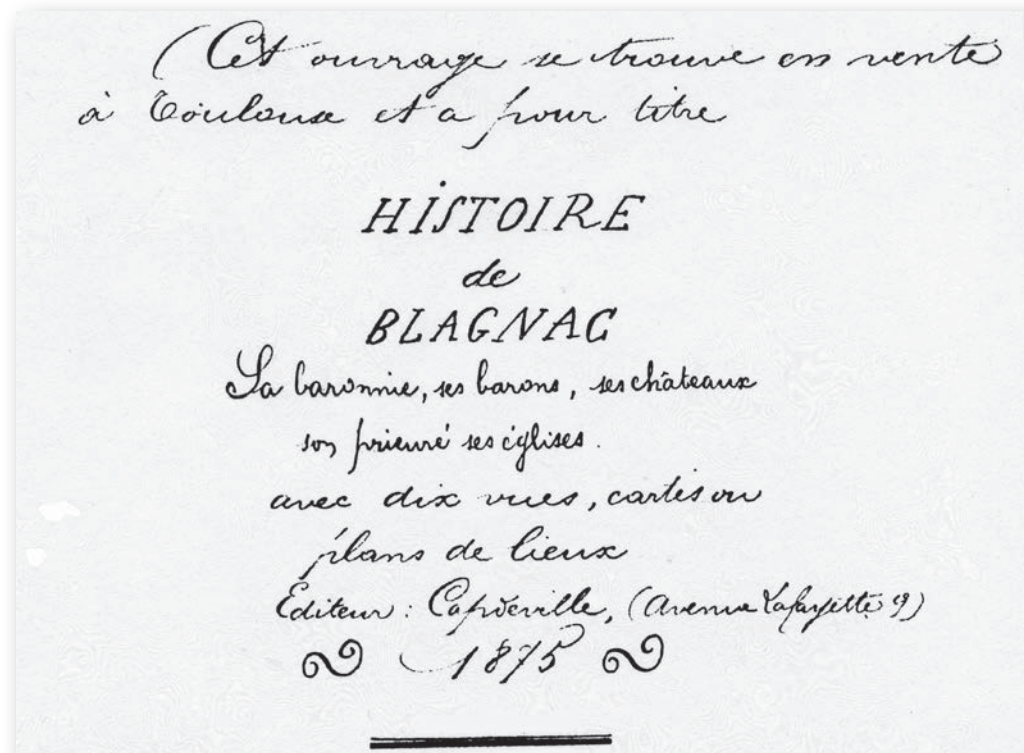 (Cet ouvrage se trouve en vente
à Toulouse et a pour titre
HISTOIRE
de
BLAGNAC
Sa baronnie, ses barons, ses châteaux
son prieuré ses églises.
avec dix vues, cartes ou
plans de lieux
Editeur : Capdeville, (Avenue Lafayette 9)
1875